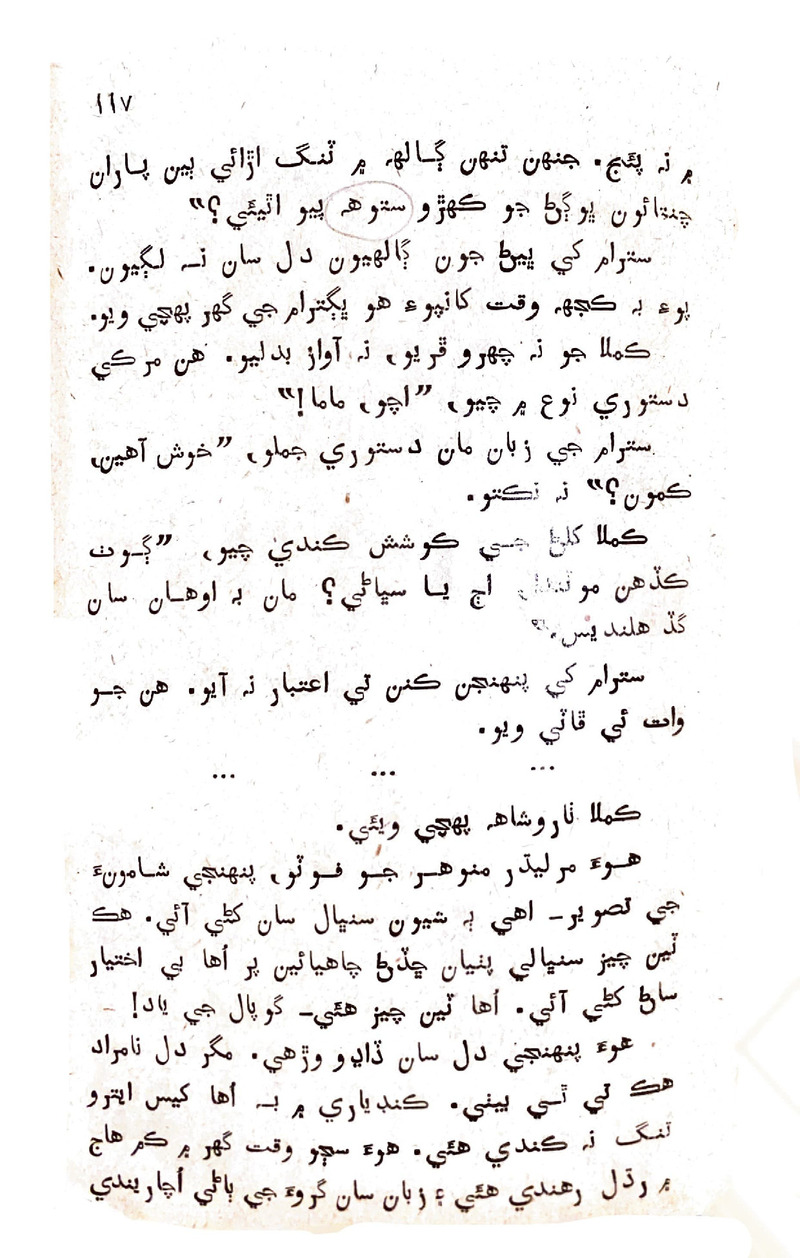 ١١٧
۾ نہ پئبو. جنهن تنهن ڳالهہ ۾ ٽنگ اڙائي ٻين پاران
چنتائون ڀوڳڻ جو ڪهڙو ستوهہ پيو اٿيئي؟“
سترام کي ڀيڻ جون ڳالهيون دل سان نہ لڳيون.
پوءِ بہ ڪجهہ وقت کانپوءِ هو ڀڳترام جي گهر پهچي ويو.
ڪملا جو نہ چهرو ڦريو، نہ آواز بدليو. هن مرڪي
دستوري نوع ۾ چيو، ”اچو، ماما!“
سترام جي زبان مان دستوري جملو، ”خوش آهين،
ڪمون؟“ نہ نڪتو.
ڪملا کلڻ جي ڪوشش ڪندي چيو، ”ڳوٺ
ڪڏهن اڄ يا سڀاڻي؟ مان بہ اوهان سان
گڏ هلنديس.“
سترام کي پنهنجن ڪنن تي اعتبار نہ آيو. هن جو
وات ئي ڦاٽي ويو.
... ... ...
ڪملا ٺاروشاهہ پهچي ويئي.
هوءَ مرليڌر منوهر جو فوٽو، پنهنجي شامونءَ
جي تصوير- اهي ٻہ شيون سنڀال سان کڻي آئي. هڪ
ٽين چيز سنڀالي پٺيان ڇڏڻ چاهيائين پر اُها بي اختيار
ساڻ کڻي آئي. اُها ٽين چيز هئي- گوپال جي ياد!
هوءَ پنهنجي دل سان ڏاڍو وڙهي. مگر دل نامراد
هڪ ٿي ٿي بيٺي. ڪنڊياري ۾ بہ اُها کيس ايترو
تنگ نہ ڪندي هئي. هوءَ سڄو وقت گهر ۾ ڪم هاج
۾ رڌل رهندي هئي ۽ زبان سان گروءَ جي ٻاڻي اُچاريندي